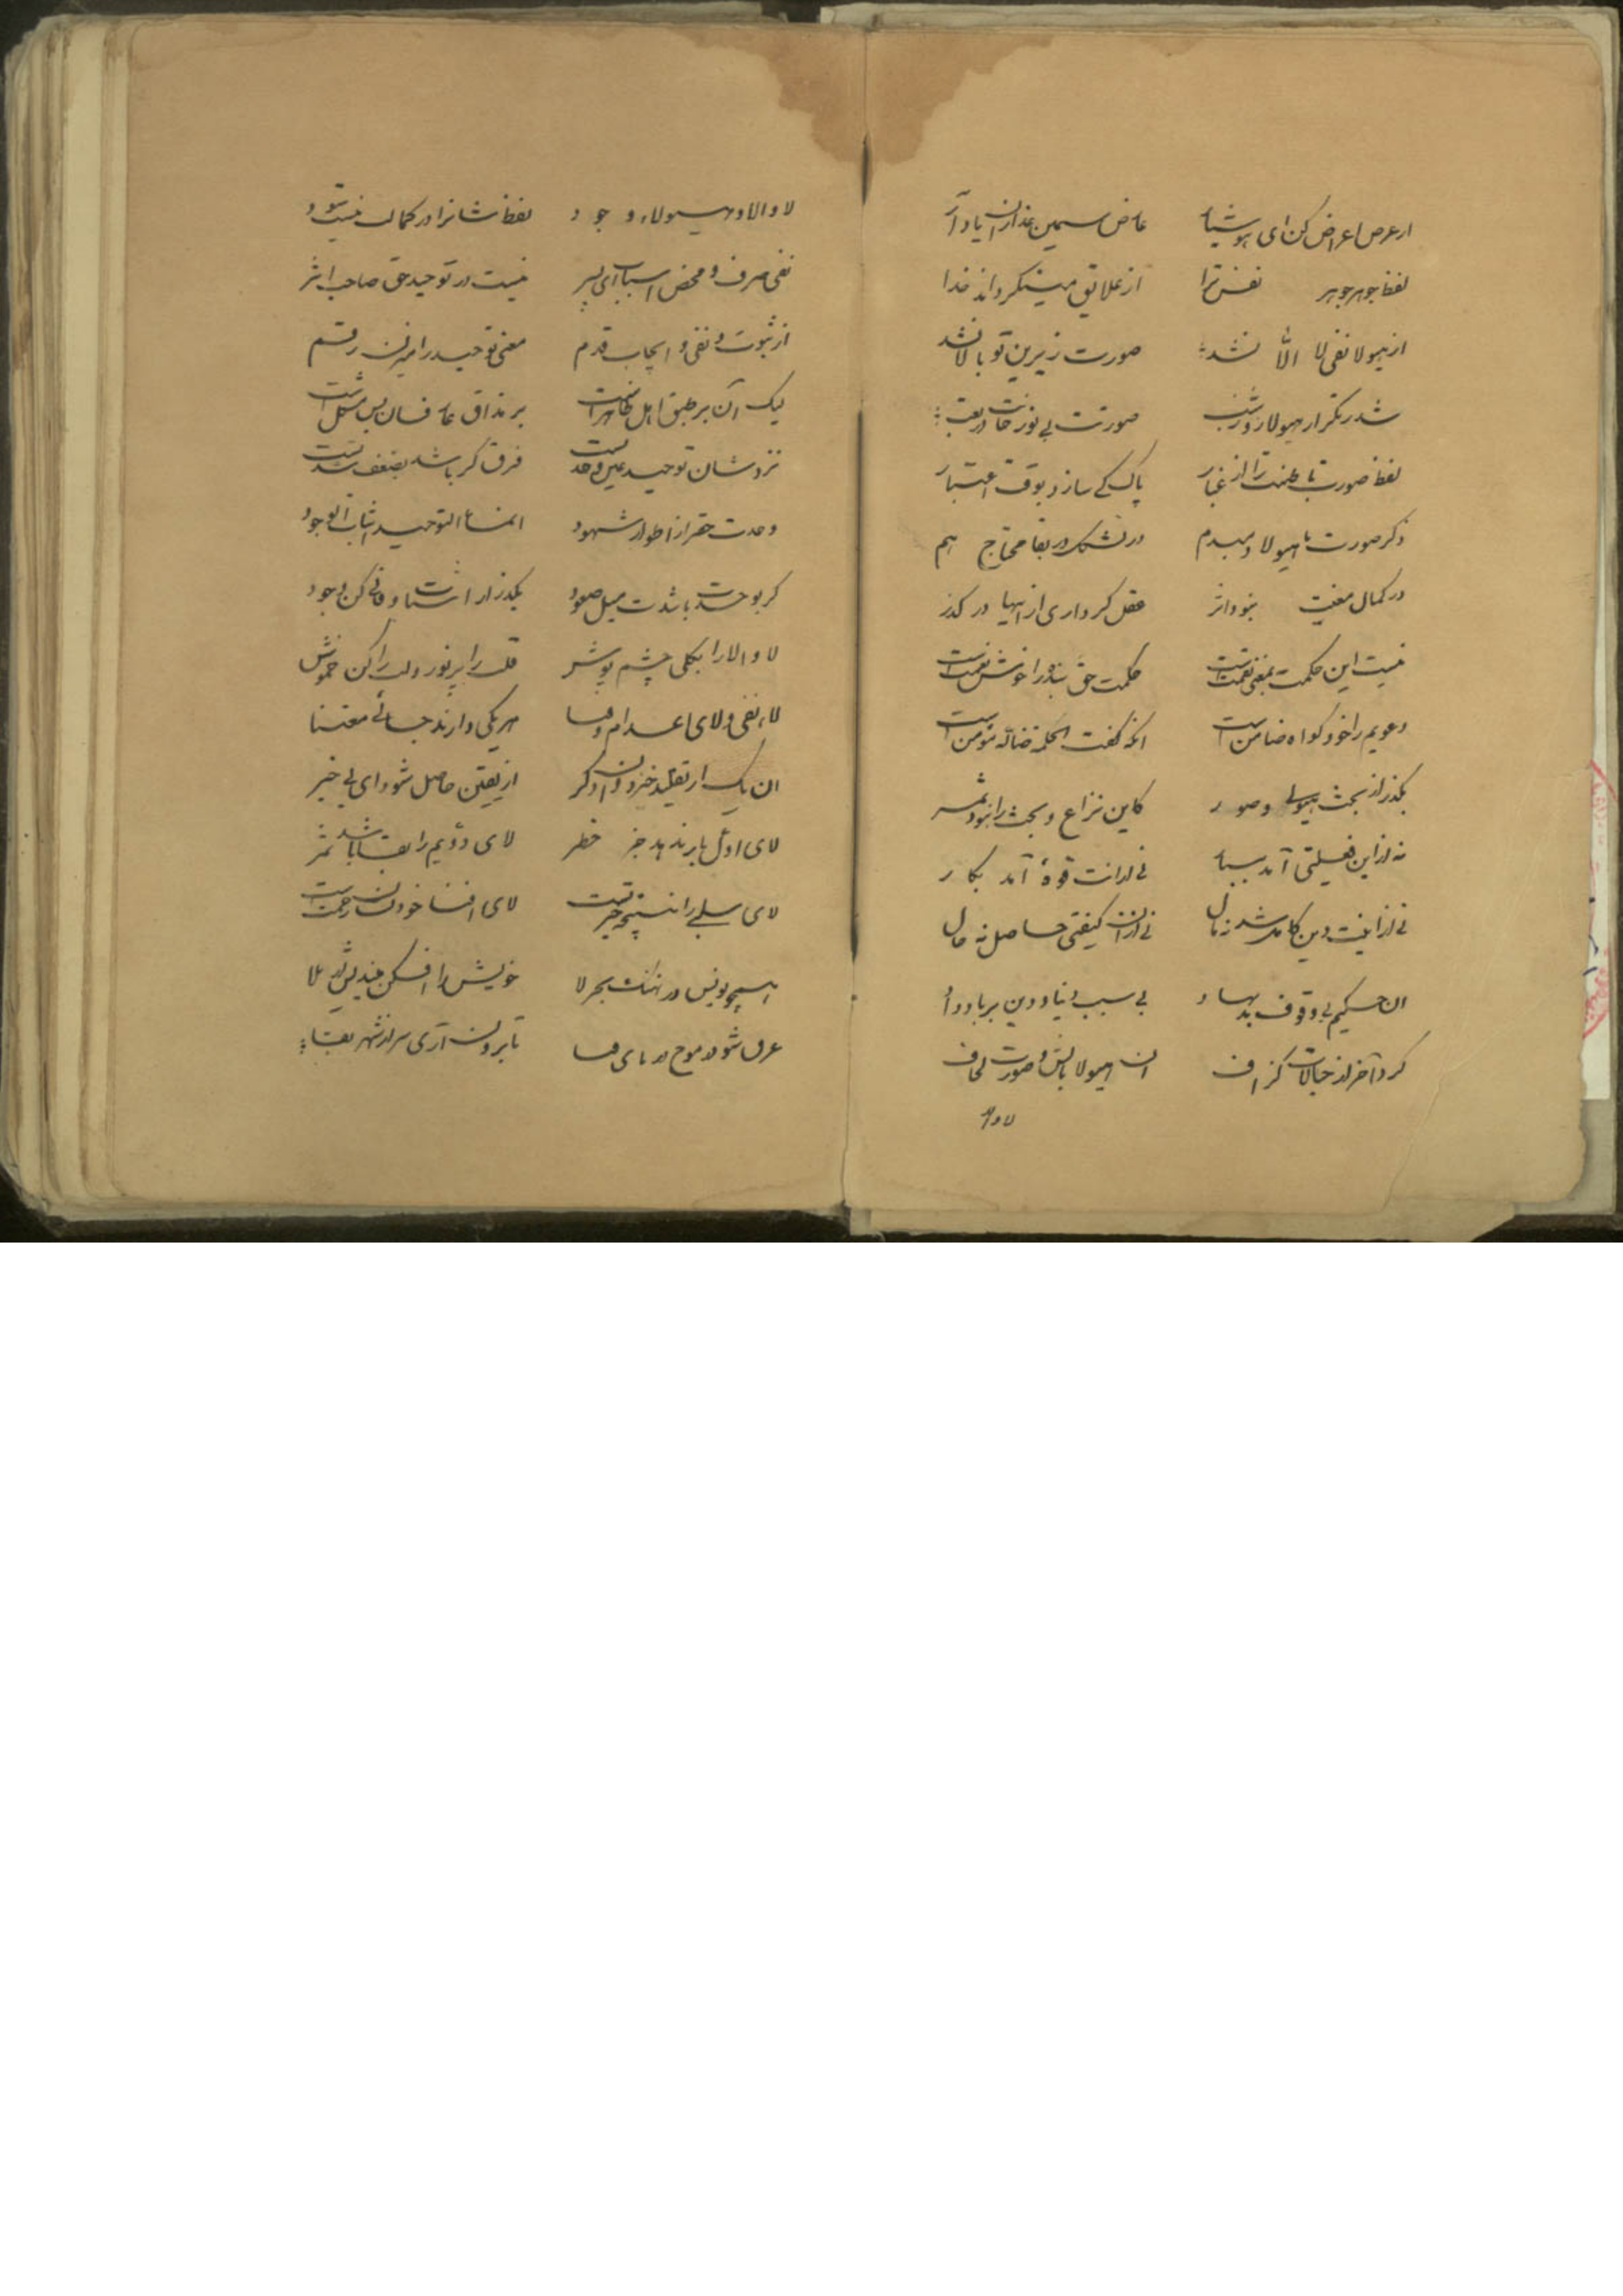 از عرض اعراض کن ای هوشیار عارض سیمین عذاران یاد آر
لفظ جوهر جوهر نفس ترا از علایق می‌نگرداند خدا
از هیولا نفی لا الّا نشد صورت زیرین تو بالا نشد
شد ز تکرار هیولا روز شب صورتت بی نور
لفظ صورت باطنت را از غبار پاک کی سازد بوقت اعتبار
ذکر صورت با هیولا دمبدم در بقا محتاج هم
در کمال معنیت نبود اثر عقل گر داری ازینها در گذر
نیست این حکمت بمعنی نقمت است حکمت حق بنده را خوش نعمت است
دعویم را خود گواه ضامن است آنکه گفت الحکمة ضالّه مؤمن است
بگذر از بحث هیولی و صور کاین نزاع و بحث را نبود ثمر
نه از این فعلیتی آمد ببار نی از آنت قوهٔ آمد بکار
نی از اینت دین کامل شد نه مال نی از آن کیفیتی حاصل نه حال
آن حکیم بی وقوف بد نهاد بی سبب دنیا و دین بر باد داد
کرد آخر از خیالات گزاف آن هیولا بالش و صورت لحاف
لا و الا
لا و الا و هیولاء وجود لفظشانرا در کمالت نیست سود
نفی صرف و محض اسباب ای پسر نیست در توحید حق صاحب اثر
از ثبوت و نفی و ایجاب قدم معنی توحید را میزن رقم
لیک آن بر طبق اهل ظاهر است بر مذاق عارفان بس مشکل است
نزدشان توحید عین وحدتست فرق گر باشد بضعف شدتست
وحدت حق از اطوار شهود انما التوحید اثبات الوجود
گر بوحدت باشدت میل صعود بگذر از اثبات و فانی کن وجود
لا و الا را بکلی چشم پوش قلب را پر نور و لب را کن خموش
لاء نفی و لای اعدام و فنا هر یکی دارند جائی معتنا
آن یک از تقلید خیزد وان دگر از یقین حاصل شود ای بی خبر
لای اول بار ندهد جز خطر لای دویم را بقا باشد ثمر
لای سلبی را نتیجه حیرتست لای افنا خود رحمتست
همچو یونس در نهنگ بحر لا خویش را افکن میندیش از بلا
غرق شو در موج دریای فنا تا برون آری سر از شهر بقا